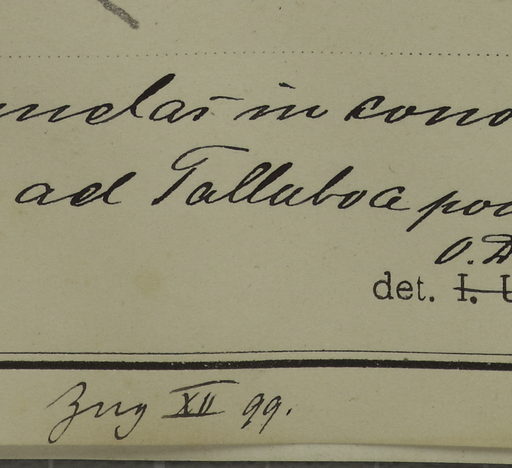 undas in cono
ad Tallaboa po
O. D
det. I. U
Zug XII 99.